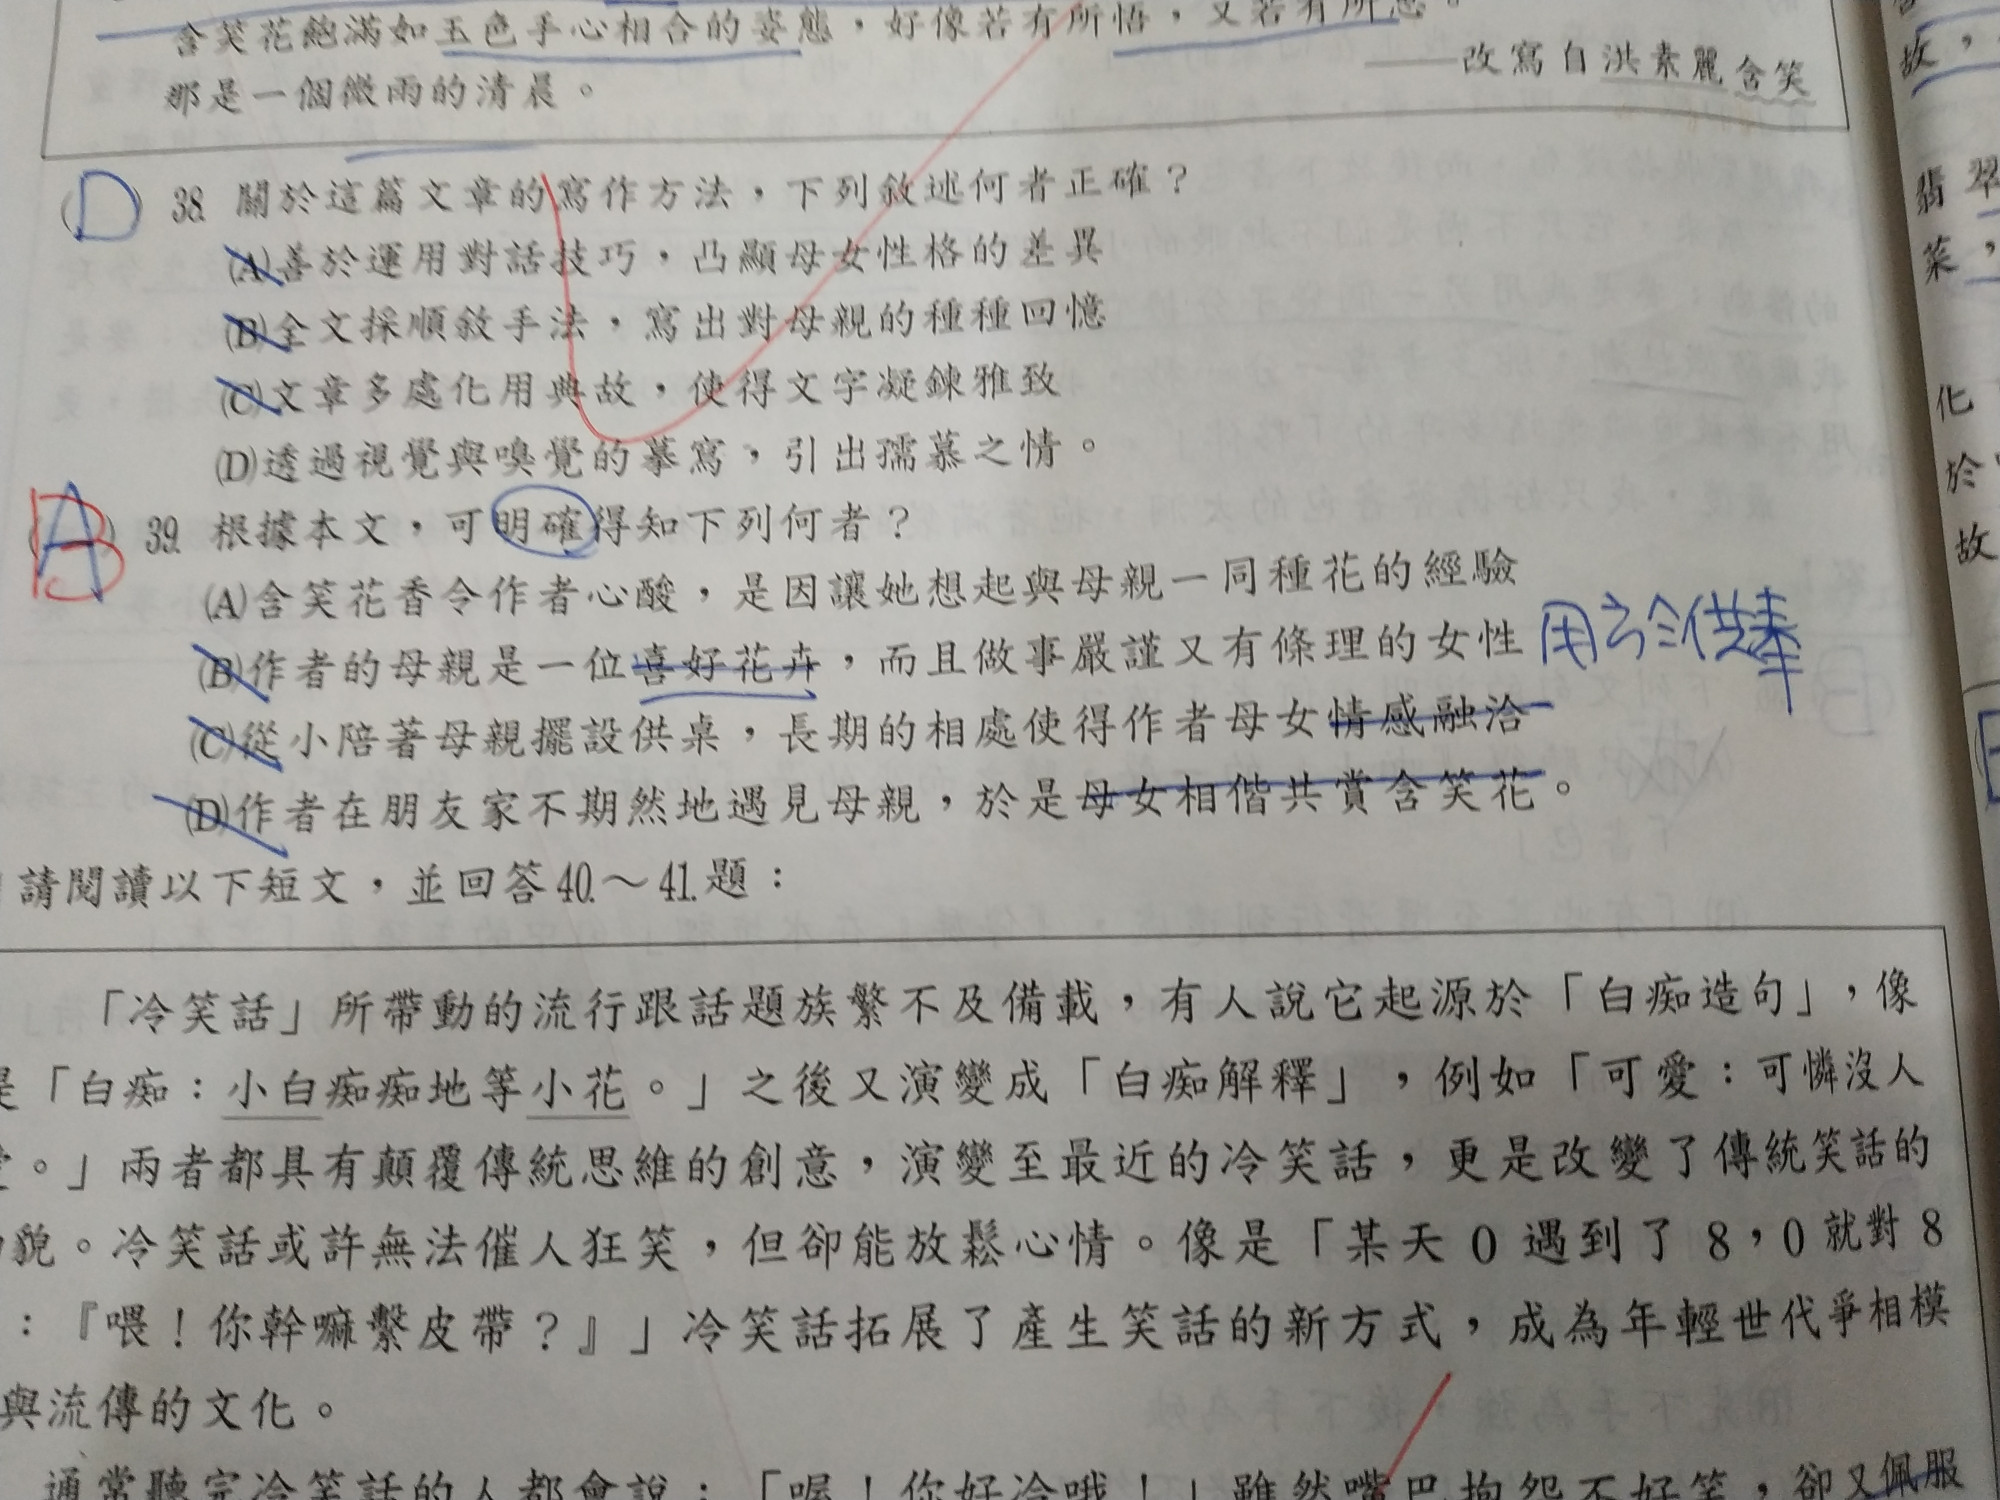 含笑花飽滿如玉色手心相合的姿態，好像若有所悟，又若有所思。
那是一個微雨的清晨。
——改寫自洪素麗含笑
(D) 38. 關於這篇文章的寫作方法，下列敘述何者正確？
(A)善於運用對話技巧，凸顯母女性格的差異
(B)全文採順敘手法，寫出對母親的種種回憶
(C)文章多處化用典故，使得文字凝鍊雅致
(D)透過視覺與嗅覺的摹寫，引出孺慕之情。
A B 39. 根據本文，可明確得知下列何者？
(A)含笑花香令作者心酸，是因讓她想起與母親一同種花的經驗
(B)作者的母親是一位喜好花卉，而且做事嚴謹又有條理的女性 用於供奉
(C)從小陪著母親擺設供桌，長期的相處使得作者母女情感融洽
(D)作者在朋友家不期然地遇見母親，於是母女相偕共賞含笑花。
請閱讀以下短文，並回答40.～41.題：
「冷笑話」所帶動的流行跟話題族繁不及備載，有人說它起源於「白痴造句」，像
是「白痴：小白痴痴地等小花。」之後又演變成「白痴解釋」，例如「可愛：可憐沒人
。」兩者都具有顛覆傳統思維的創意，演變至最近的冷笑話，更是改變了傳統笑話的
貌。冷笑話或許無法催人狂笑，但卻能放鬆心情。像是「某天 0 遇到了 8，0 就對 8
：『喂！你幹嘛繫皮帶？』」冷笑話拓展了產生笑話的新方式，成為年輕世代爭相模
與流傳的文化。
通常聽完冷笑話的人都會說：「喔！你好冷哦！」雖然嘴巴抱怨不好笑，卻又佩服
故，
翡翠
菜，
化
於
故